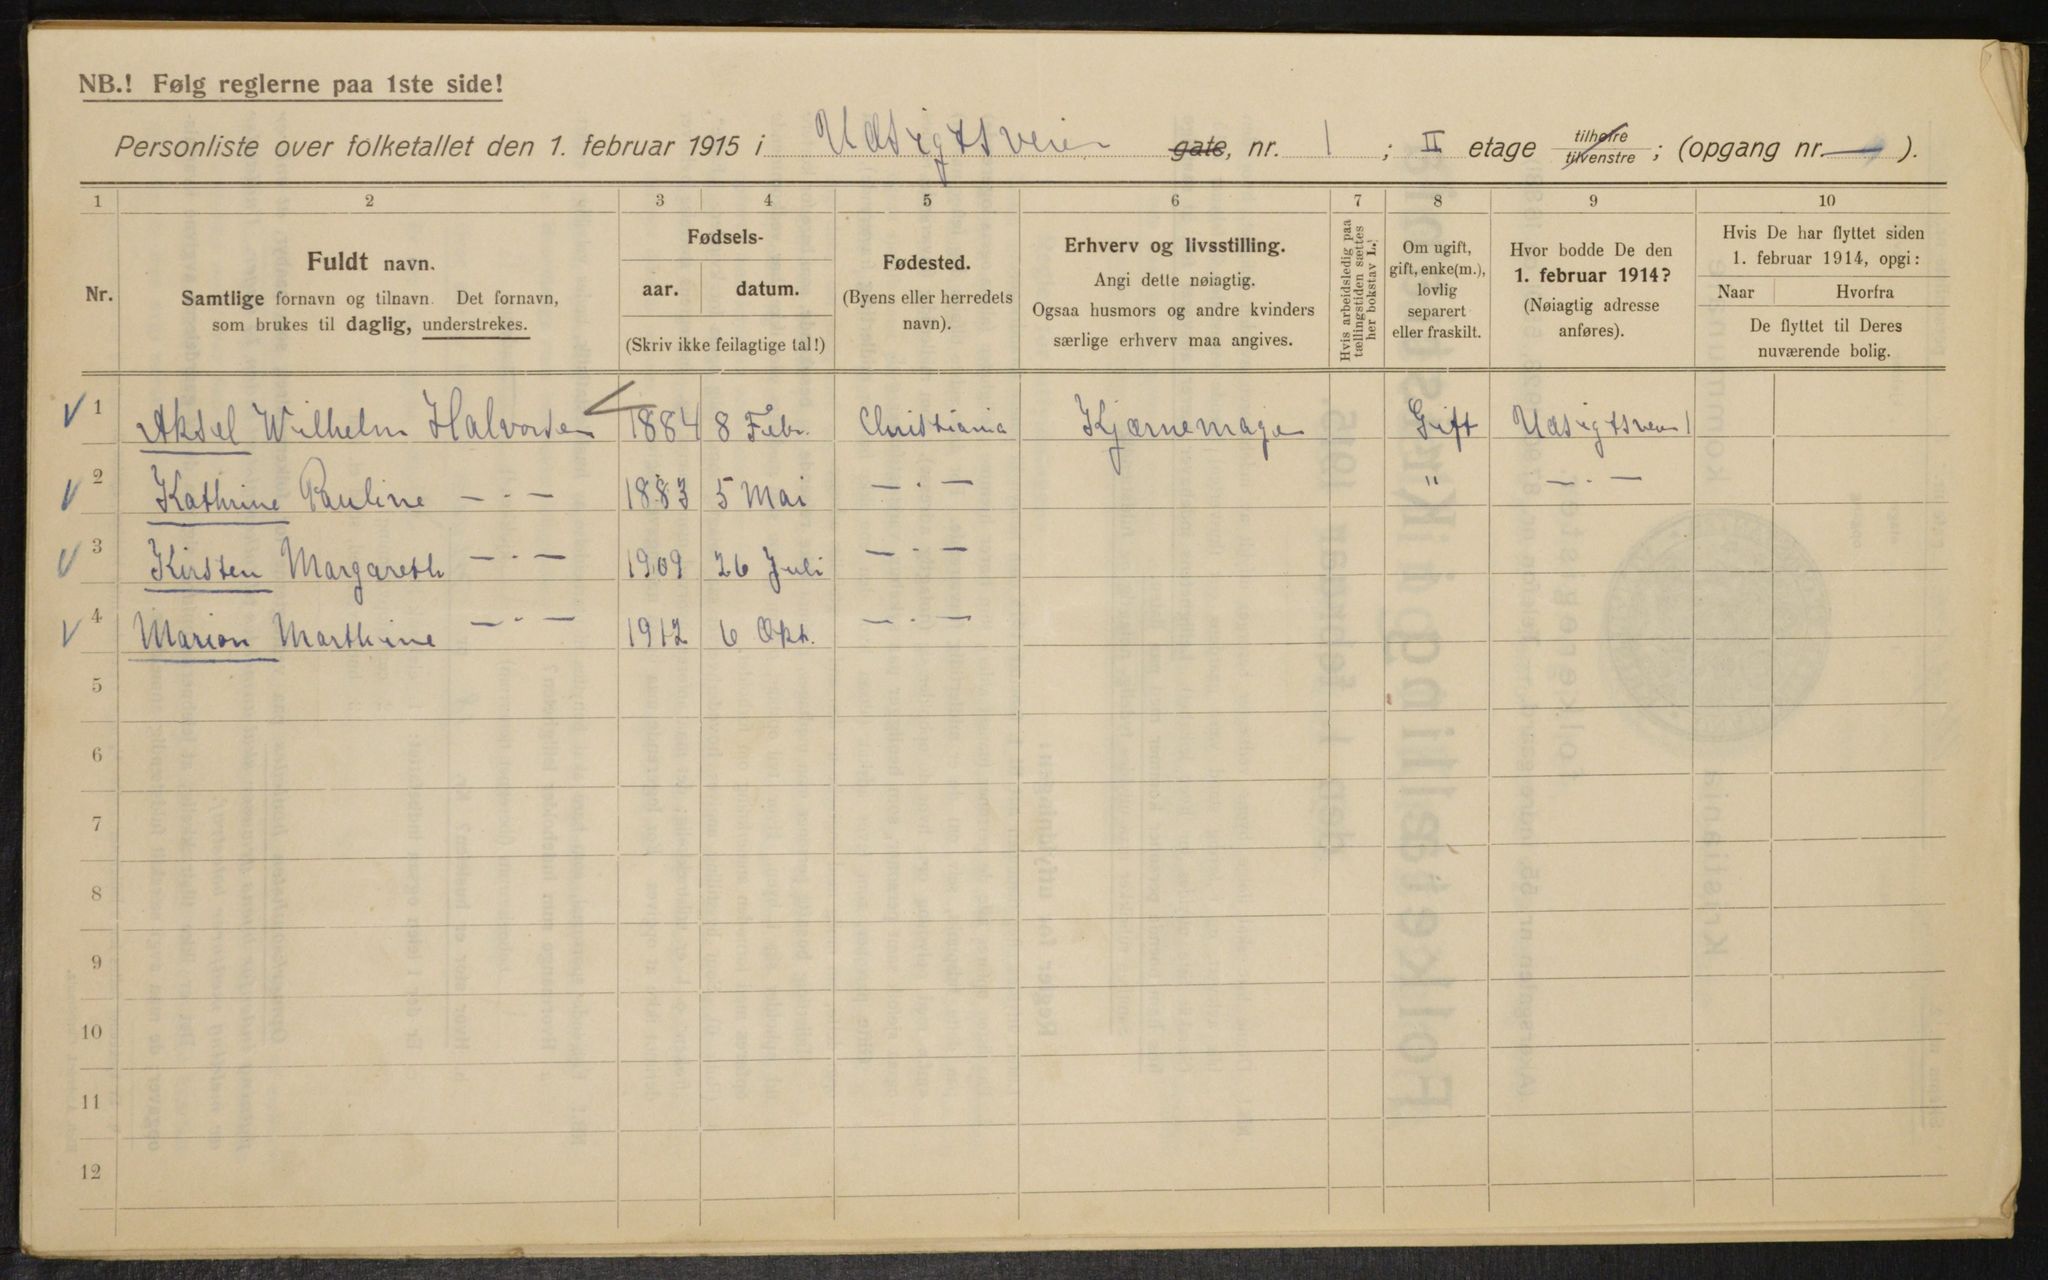 NB.! Følg reglerne paa 1ste side!
Personliste over folketallet den 1. februar 1915 i Udsigtsveien gate, nr. 1 ; II etage tilhøire tilvenstre ; (opgang nr. — ).
1 2 3 4 5 6 7 8 9 10
Nr.
Fuldt navn.
Samtlige fornavn og tilnavn. Det fornavn,
som brukes til daglig, understrekes.
Fødsels-
aar. datum.
(Skriv ikke feilagtige tal!)
Fødested.
(Byens eller herredets
navn).
Erhverv og livsstilling.
Angi dette nøiagtig.
Ogsaa husmors og andre kvinders
særlige erhverv maa angives.
Hvis arbeidsledig paa
tællingstiden sættes
her bokstav L.)
Om ugift,
gift, enke(m.),
lovlig
separert
eller fraskilt.
Hvor bodde De den
1. februar 1914?
(Nøiagtig adresse
anføres).
Hvis De har flyttet siden
1. februar 1914, opgi:
Naar Hvorfra
De flyttet til Deres
nuværende bolig.
1 Aksel Wilhelm Halvorsen 1884 8 Febr. Christiania Kjærnemager Gift Udsigtsveien 1
2 Kathrine Pauline — · — 1883 5 Mai — · — " — · —
3 Kirsten Margareth — · — 1909 26 Juli — · —
4 Marion Marthine — · — 1912 6 Okt. — · —
5
6
7
8
9
10
11
12